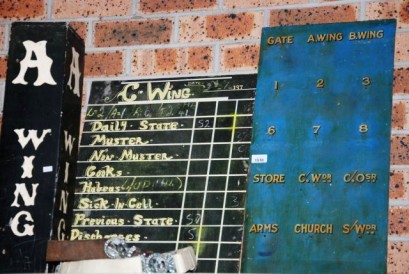 A
WING
A
WING
C WING
197
Daily State 52
Muster
Non Muster
Cooks
Habeus
Sick In Cell
Previous State 50
Discharges
GATE A.WING B.WING
1 2 3
6 7 8
STORE C.WDN C.OSR
ARMS CHURCH S/WDR